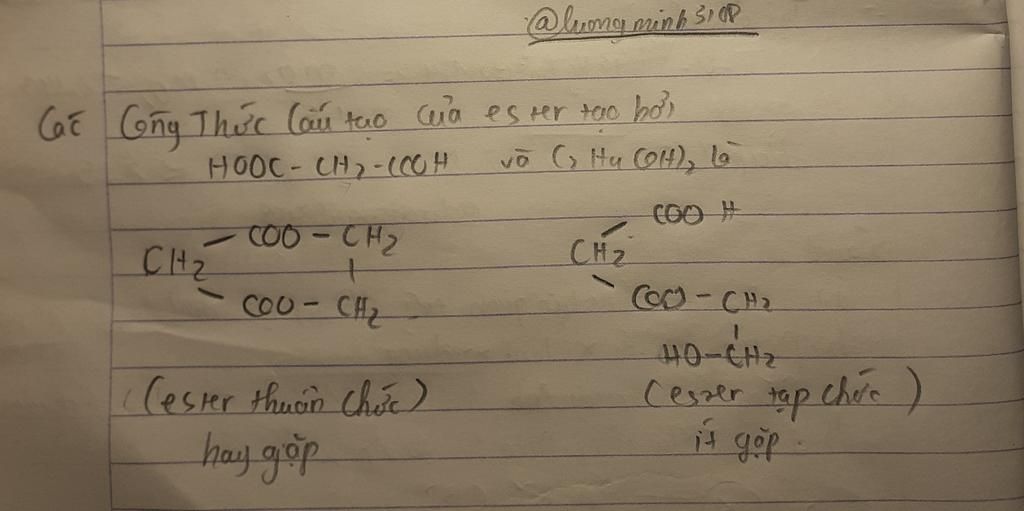 @luongminh3108
Các Công Thức Cấu tạo của ester tạo bởi
HOOC - CH2 - COOH và C2H4(OH)2 là
COO H
COO - CH2
CH2
CH2
COO - CH2
COO - CH2
HO - CH2
(ester thuần chức)
(ester tạp chức)
hay gặp
ít gặp.